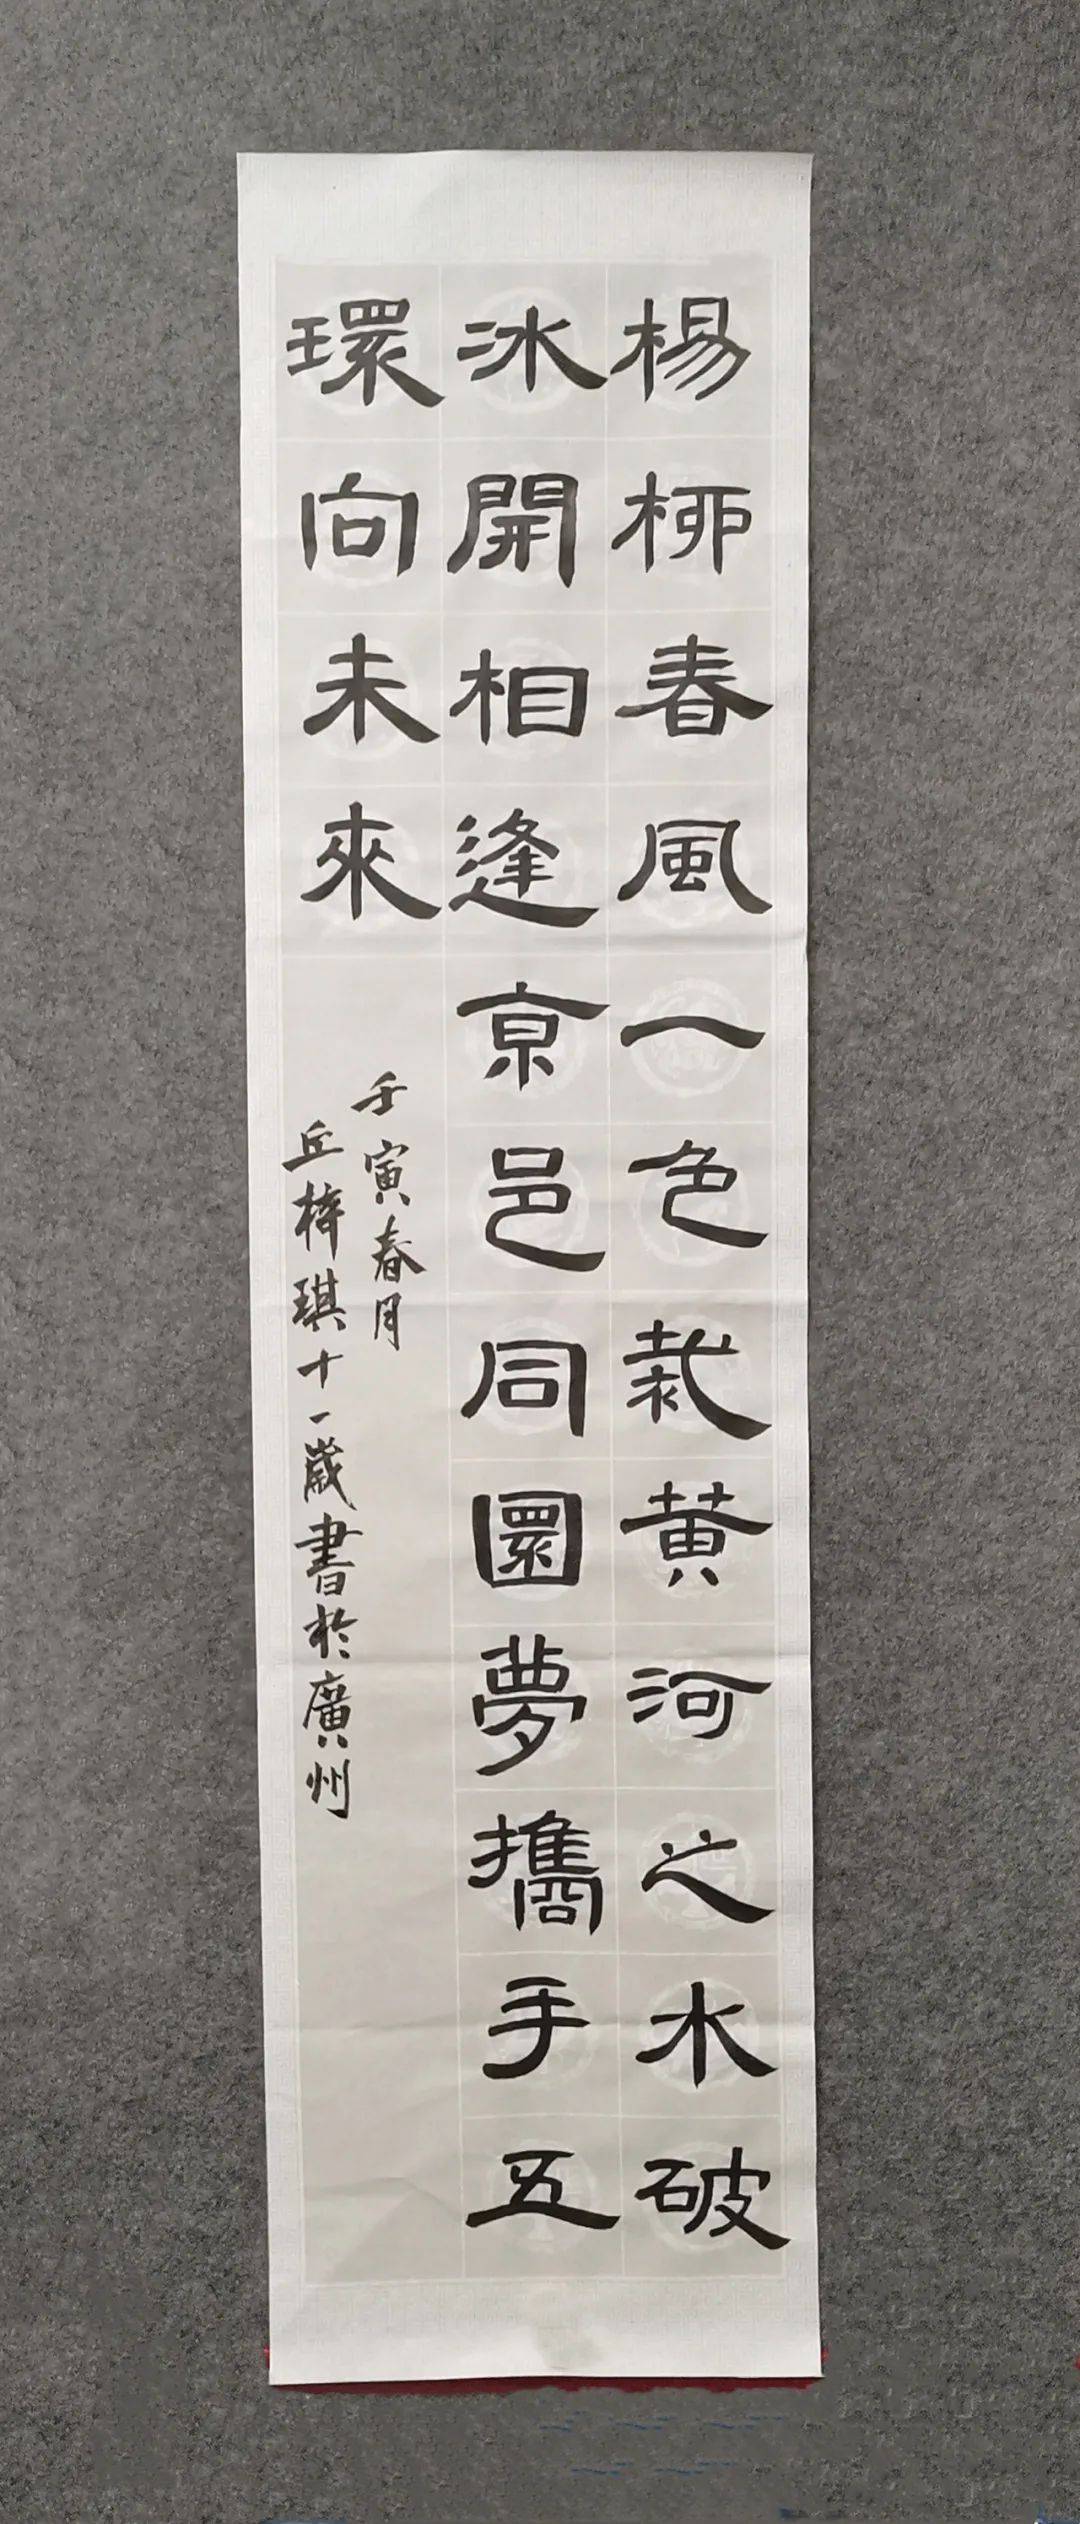 楊柳春風一色裁黄河之水破
冰開相逢京邑同圜夢攜手五
環向未來
壬寅春月
丘梓琪十一歲書於廣州